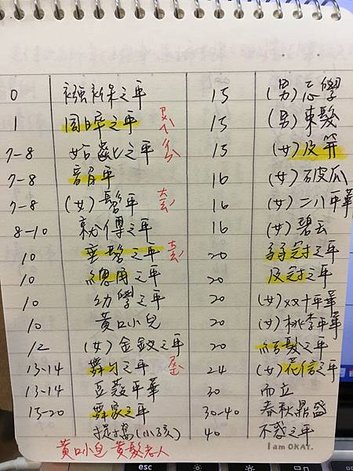 0 襁褓之年 15 (男)志學
1 周晬之年 15 (男)束髮
7-8 始齔之年 15 (女)及笄
7-8 韶年 16 (女)破瓜
7-8 (女)髫年 16 (女)二八年華
8-10 就傅之年 16 (女)碧玉
10 垂髫之年 20 弱冠之年
10 總角之年 20 及冠之年
10 幼學之年 20 (女)双十年華
10 黃口小兒 20 (女)桃李年華
12 (女)金釵之年 20 結髮之年
13-14 舞勺之年 24 (女)花信之年
13-14 豆蔻年華 30 而立
15-20 舞象之年 30-40 春秋鼎盛
(小孩) 40 不惑之年
黃口小兒 黃髮老人 I am OKAY.
esc